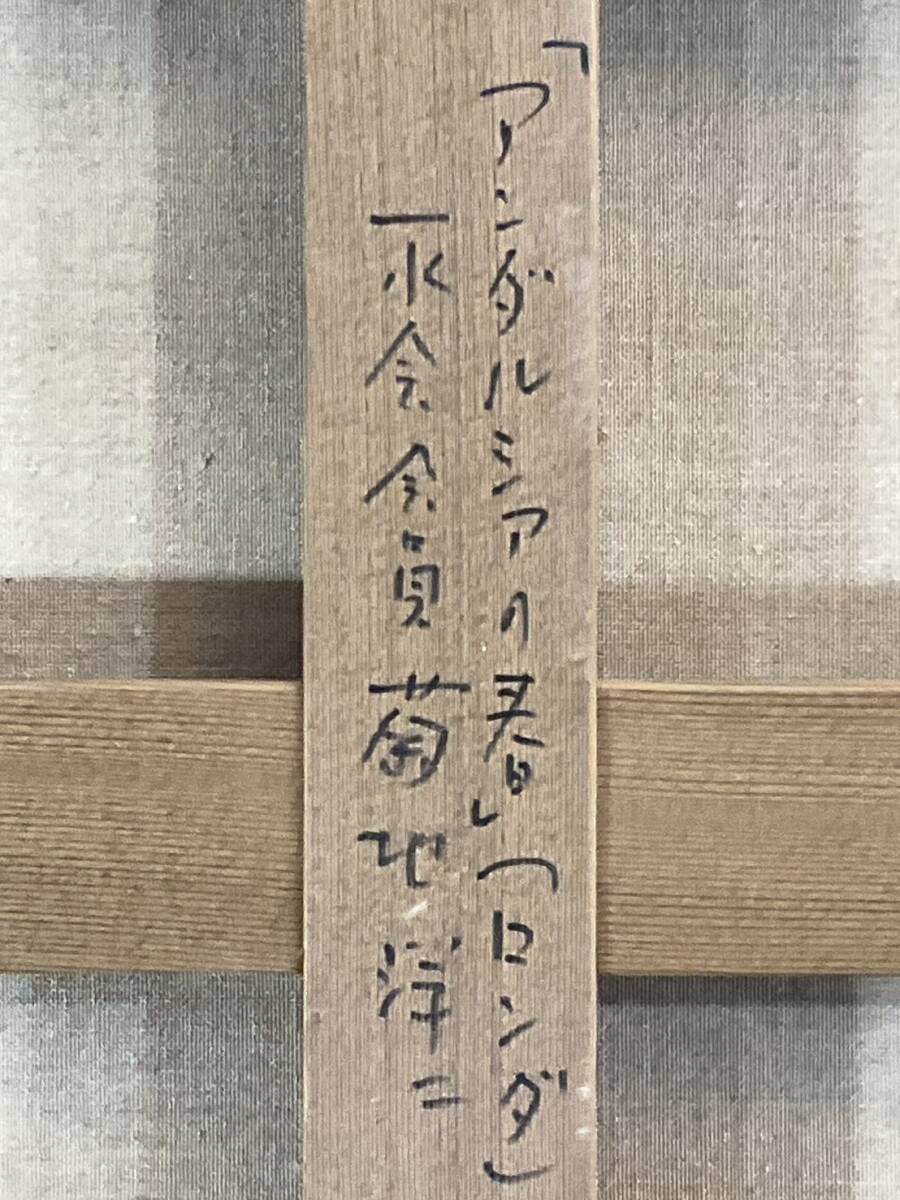 「アンダルシアの春」（ロンダ）
一水会会員 菊地洋二